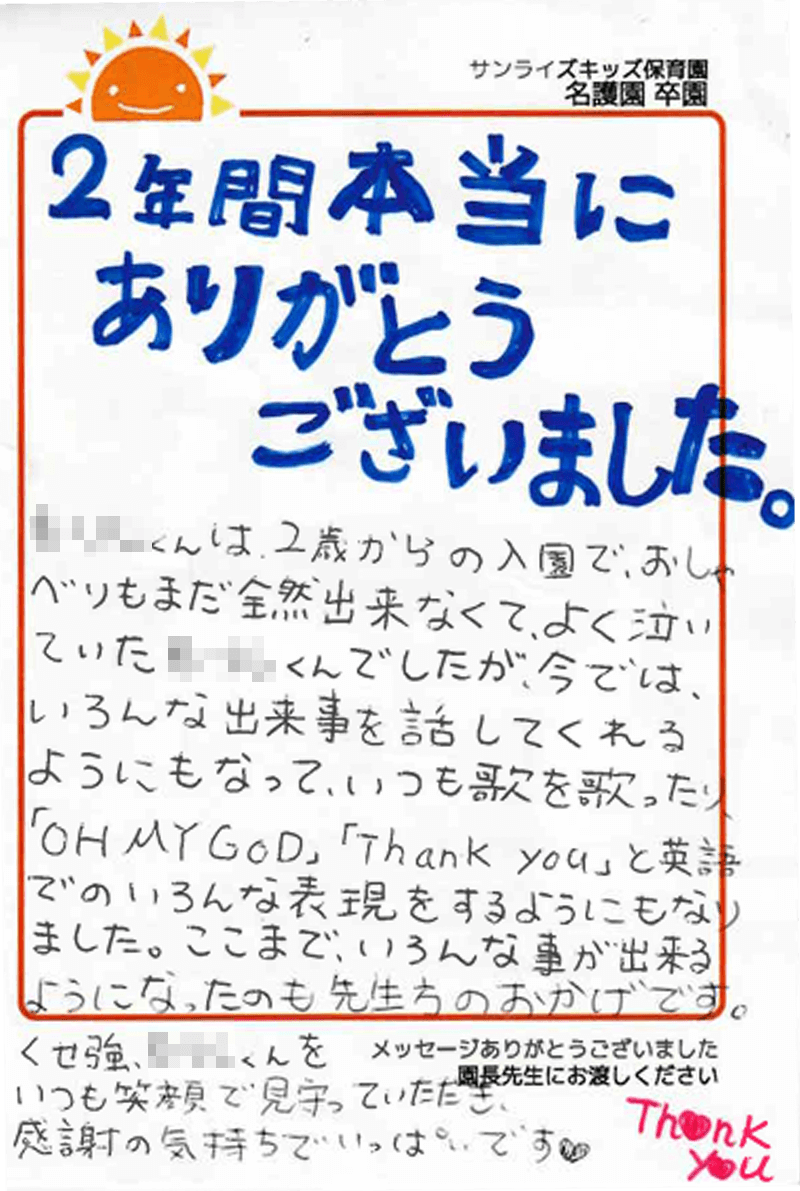 サンライズキッズ保育園
名護園 卒園
2年間本当に
ありがとう
ございました。
くんは、2歳からの入園で、おしゃ
べりもまだ全然出来なくて、よく泣い
ていた くんでしたが、今では、
いろんな出来事を話してくれる
ようにもなって、いつも歌を歌ったり、
「OH MY GOD」「Thank you」と英語
でのいろんな表現をするようにもなり
ました。ここまで、いろんな事が出来る
ようになったのも先生方のおかげです。
くせ強、 くんを
いつも笑顔で見守っていただき、
感謝の気持ちでいっぱいです♥
メッセージありがとうございました
園長先生にお渡しください
Thank
you